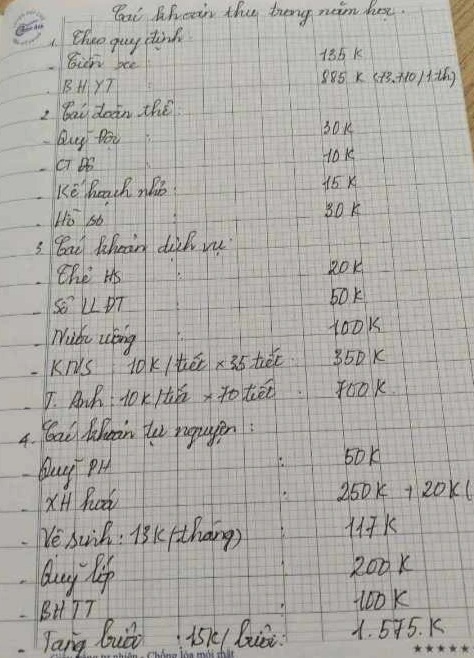 Các khoản thu trong năm học.
1. Theo quy định.
- Tiền xe : 135 K
- BHYT : 885 K (73.710/1.th)
2. Các đoàn thể:
- Quỹ Đội : 30K
- CT Đ : 10 K
- Kế hoạch nhỏ : 15 K
- Hồ sơ : 30 K
3. Các khoản dịch vụ:
- Thẻ HS : 20K
- Sổ LLĐT : 50K
- Nước uống : 100K
- KNS : 10K/tiết × 35 tiết. 350K
- T. Anh : 10K/tiết × 70 tiết. 700K.
4. Các khoản tự nguyện :
- Quỹ PH : 50K
- XH hoá : 250K + 20K (
- Vệ sinh : 13K (tháng) : 117 K
- Quỹ lớp : 200 K
- BHTT : 100 K
- Tăng buổi : 15K/ buổi: 1.575.K
Chống lóa mỏi mắt ★★★★★